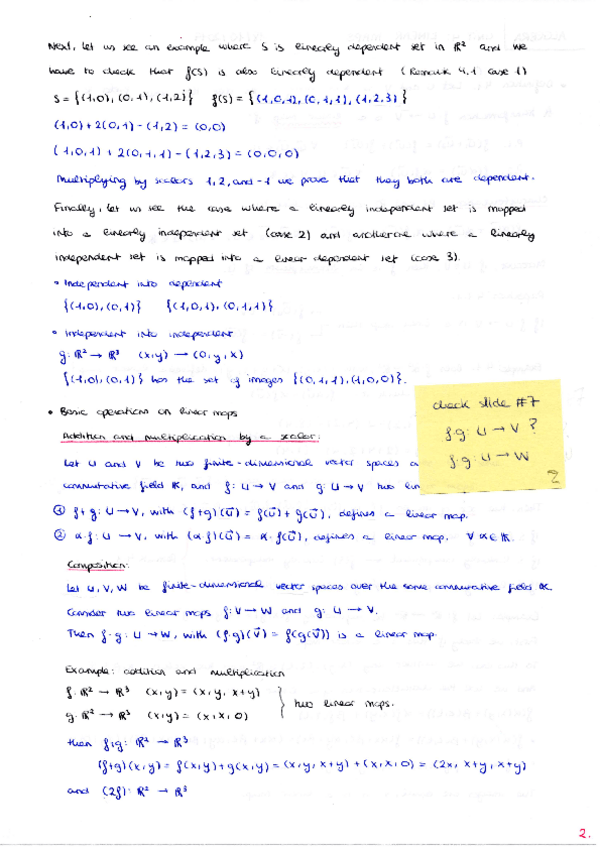 Next, let us see an example where S is linearly dependent set in ℝ² and we
have to check that f(S) is also linearly dependent (Remark 4.1 case 1)
S = {(1,0), (0,1), (1,2)} f(S) = {(1,0,1), (0,1,1), (1,2,3)}
(1,0) + 2(0,1) - (1,2) = (0,0)
(1,0,1) + 2(0,1,1) - (1,2,3) = (0,0,0)
Multiplying by scalars 1, 2, and -1 we prove that they both are dependent.
Finally, let us see the case where a linearly independent set is mapped
into a linearly independent set (case 2) and another one where a linearly
independent set is mapped into a linear dependent set (case 3).
• Independent into dependent
{(1,0), (0,1)} {(1,0,1), (0,1,1)}
• Independent into independent
g: ℝ² → ℝ³ (x,y) → (0, y, x)
{(1,0), (0,1)} has the set of images {(0,1,1), (1,0,0)}.
check slide #7
f·g: U → V ?
f·g: U → W
2
• Basic operations on linear maps
Addition and multiplication by a scalar:
Let U and V be two finite-dimensional vector spaces
commutative field K, and f: U → V and g: U → V two
① f+g: U → V, with (f+g)(u⃗) = f(u⃗) + g(u⃗), defines a linear map.
② α·f: U → V, with (α·f)(u⃗) = α·f(u⃗), defines a linear map. ∀ α ∈ K.
Composition:
Let U, V, W be finite-dimensional vector spaces over the same commutative field K.
Consider two linear maps f: V → W and g: U → V.
Then f·g: U → W, with (f·g)(v⃗) = f(g(v⃗)) is a linear map.
Example: addition and multiplication
f: ℝ² → ℝ³ (x,y) = (x, y, x+y)
g: ℝ² → ℝ³ (x,y) = (x, x, 0)
} two linear maps.
then f+g: ℝ² → ℝ³
(f+g)(x,y) = f(x,y) + g(x,y) = (x, y, x+y) + (x, x, 0) = (2x, x+y, x+y)
and (2f): ℝ² → ℝ³
2.